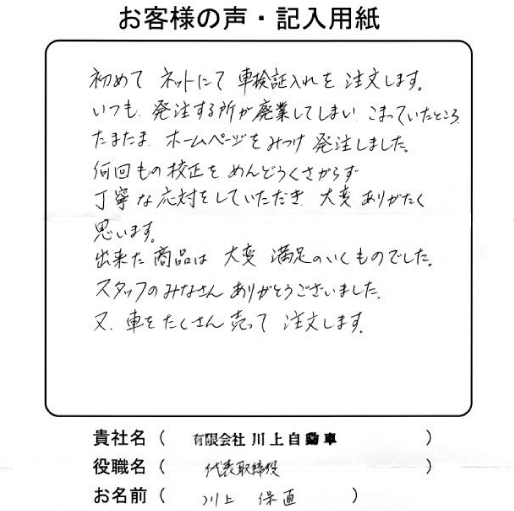 お客様の声・記入用紙
初めて ネットにて 車検証入れを 注文します。
いつも 発注する所が廃業してしまい こまっていたところ
たまたま ホームページをみつけ 発注しました。
何回もの校正を めんどうくさがらず
丁寧な応対をしていただき 大変 ありがたく
思います。
出来た商品は 大変 満足のいくものでした。
スタッフのみなさん ありがとうございました。
又、車をたくさん売って 注文します。
貴社名（ 有限会社 川上自動車 ）
役職名（ 代表取締役 ）
お名前（ 川上 保直 ）